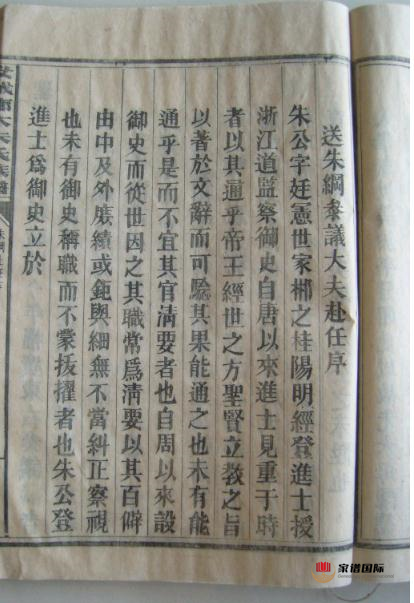 送朱綱參議大夫赴任序
朱公字廷憲世家郴之桂陽明經登進士授
浙江道監察御史自唐以來進士見重于時
者以其通乎帝王經世之方聖賢立教之旨
以著於文辭而可驗其果能通之也未有能
通乎是而不宜其官清要者也自周以來設
御史而從世因之其職常爲清要以其百僻
由中及外庶績或鉅與細無不當糾正察視
也未有御史稱職而不蒙拔擢者也朱公登
進士爲御史立於
家谱国际